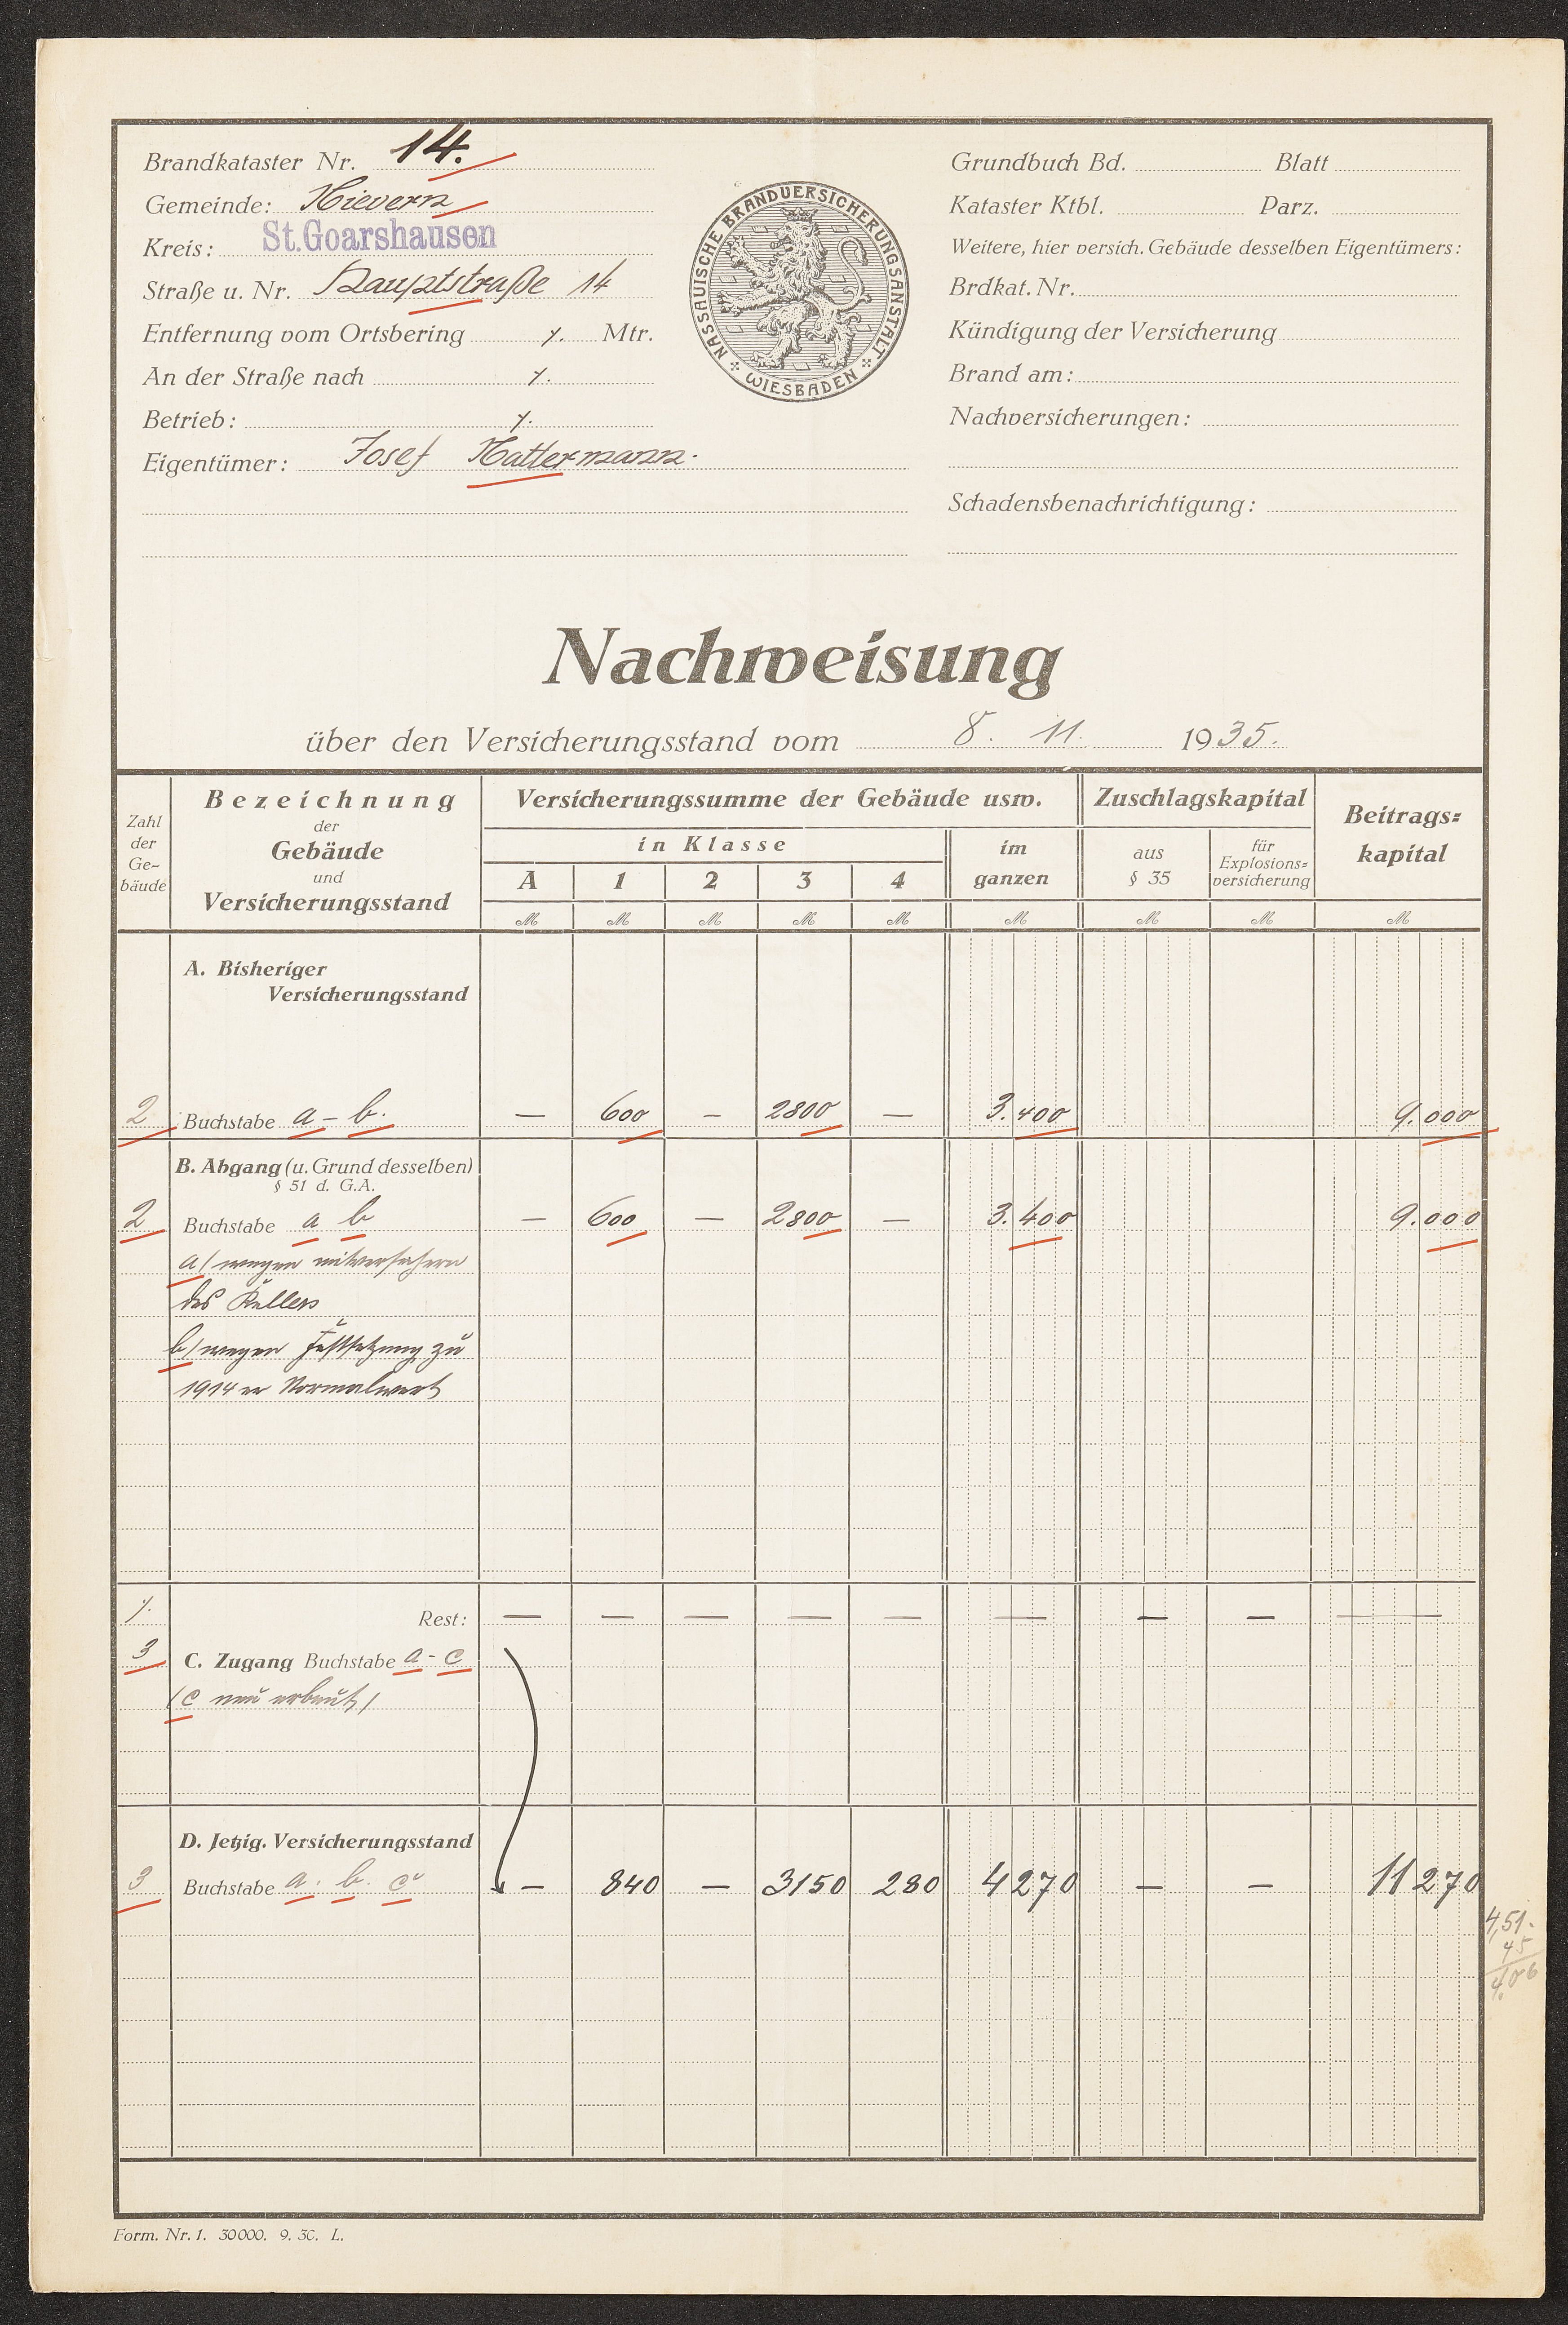 Brandkataster Nr. 14.
Gemeinde: Nievern
Kreis: St. Goarshausen
Straße u. Nr. Hauptstraße 14
Entfernung vom Ortsbering ./. Mtr.
An der Straße nach ./.
Betrieb: ./.
Eigentümer: Josef Hattermann.
NASSAUISCHE BRANDVERSICHERUNGSANSTALT
WIESBADEN
Grundbuch Bd. Blatt
Kataster Ktbl. Parz.
Weitere, hier versich. Gebäude desselben Eigentümers:
Brdkat. Nr.
Kündigung der Versicherung
Brand am:
Nachversicherungen:
Schadensbenachrichtigung:
Nachweisung
über den Versicherungsstand vom 8. 11. 1935.
Zahl der Ge-bäude
Bezeichnung der Gebäude und Versicherungsstand
Versicherungssumme der Gebäude usw.
in Klasse
A 1 2 3 4
im ganzen
Zuschlagskapital
aus § 35
für Explosions-versicherung
Beitrags-kapital
M M M M M M M M M
A. Bisheriger
Versicherungsstand
2 Buchstabe a – b. — 600 — 2800 — 3.400 9.000
B. Abgang (u. Grund desselben)
§ 51 d. G.A.
2 Buchstabe a b — 600 — 2800 — 3.400 9.000
a/ wegen mitversichern
des Kellers
b/ wegen Festsetzung zu
1914er Normalwert
./. Rest: — — — — — — — — —
3 C. Zugang Buchstabe a - c
/c neu erbaut/
D. Jetzig. Versicherungsstand
3 Buchstabe a. b. c — 840 — 3150 280 4270 — — 11270
4,51.
45
4,06
Form. Nr. 1. 30000. 9. 30. L.